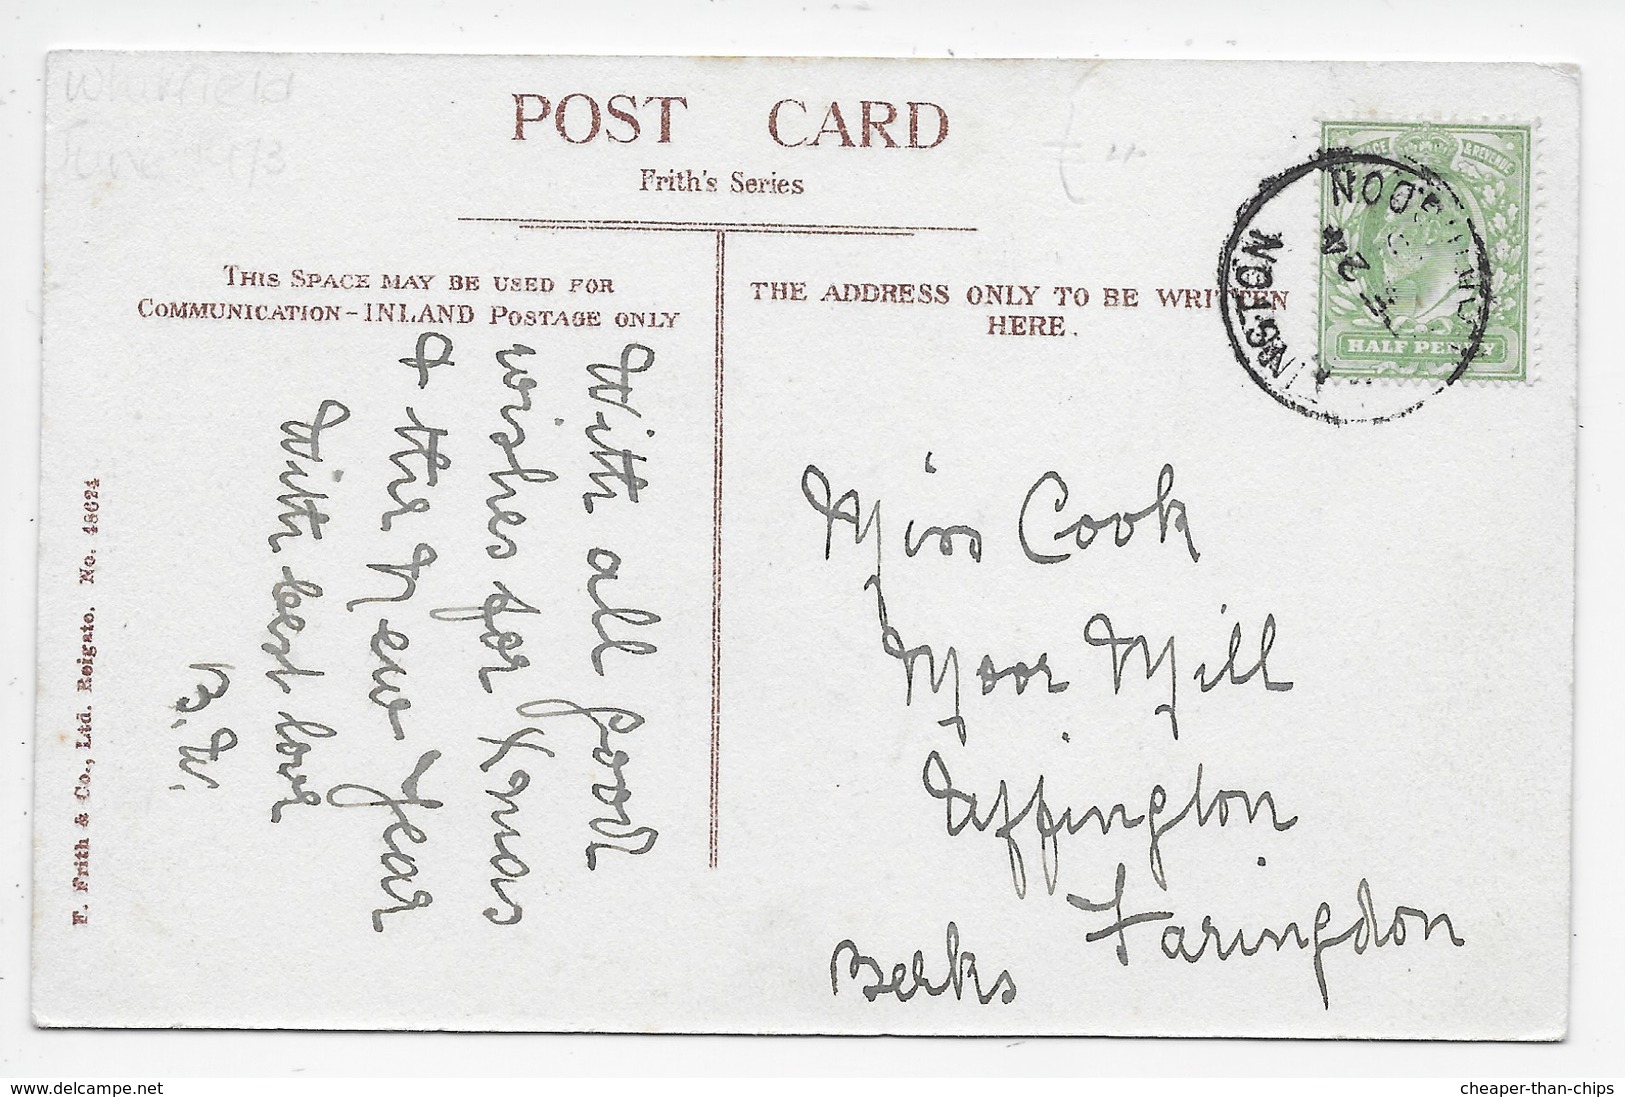 Whitfield
June
1/3
POST CARD
Frith's Series
THIS SPACE MAY BE USED FOR
COMMUNICATION - INLAND POSTAGE ONLY
THE ADDRESS ONLY TO BE WRITTEN
HERE.
& REVENUE
HALF PENNY
KINGSTON
FARINGDON
With all good
wishes for Xmas
& the New Year
With best love
B. W.
Miss Cook
Moor Mill
Uffington
Faringdon
Berks
F. Frith & Co., Ltd. Reigate. No. 48624
www.delcampe.net
cheaper-than-chips